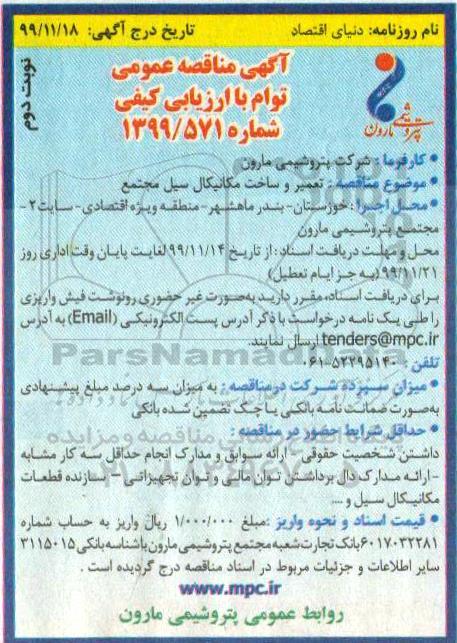 نام روزنامه: دنیای اقتصاد تاریخ درج آگهی: ۹۹/۱۱/۱۸
نوبت دوم
آگهی مناقصه عمومی
توام با ارزیابی کیفی
شماره ۱۳۹۹/۵۷۱
پتروشیمی مارون
• کارفرما : شرکت پتروشیمی مارون
• موضوع مناقصه : تعمیر و ساخت مکانیکال سیل مجتمع
• محل اجرا : خوزستان-بندر ماهشهر-منطقه ویژه اقتصادی-سایت۲-
مجتمع پتروشیمی مارون
محل و مهلت دریافت اسناد : از تاریخ ۹۹/۱۱/۱۴ لغایت پایان وقت اداری روز
۹۹/۱۱/۲۱ (به جز ایام تعطیل)
برای دریافت اسناد، مقرر دارید به‌صورت غیر حضوری رونوشت فیش واریزی
را طی یک نامه درخواست با ذکر آدرس پست الکترونیکی (Email) به آدرس
tenders@mpc.ir ارسال نمایند.
تلفن : ۰۶۱-۵۲۲۹۵۱۴۰
• میزان سپرده شرکت در مناقصه : به میزان سه درصد مبلغ پیشنهادی
به‌صورت ضمانت نامه بانکی یا چک تضمین شده بانکی
• حداقل شرایط حضور در مناقصه :
داشتن شخصیت حقوقی – ارائه سوابق و مدارک انجام حداقل سه کار مشابه
- ارائه مدارک دال برداشتن توان مالی و توان تجهیزاتی – سازنده قطعات
مکانیکال سیل و ....
• قیمت اسناد و نحوه واریز : مبلغ ۱/۰۰۰/۰۰۰ ریال واریز به حساب شماره
۶۰۱۷۰۳۲۲۸۱ بانک تجارت شعبه مجتمع پتروشیمی مارون با شناسه بانکی ۳۱۱۵۰۱۵
سایر اطلاعات و جزئیات مربوط در اسناد مناقصه درج گردیده است .
www.mpc.ir
روابط عمومی پتروشیمی مارون